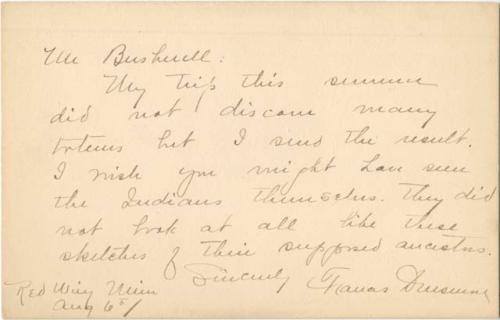 Mr Bushnell:
My trip this summer
did not discom many
totems but I send the result.
I wish you might have seen
the Indians themselves. They did
not look at all like these
sketches of their supposed ancestors.
Sincerely Frances Densmore
Red Wing Minn
Aug 6